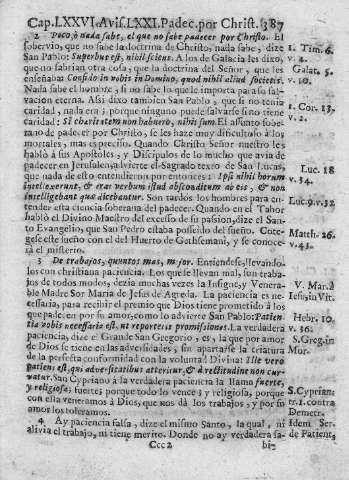 Cap. LXXVI. Avis. LXXI. Padec. por Christ. 387
2 Poco, ò nada sabe, el que no sabe padecer por Christo. El
sobervio, que no sabe la doctrina de Christo, nada sabe, dize
San Pablo: Superbus est, nihil sciens. A los de Galacia les dize,
que no sabrian otra cosa, que la doctrina del Señor, que les
enseñaba: Confido in vobis in Domino, quod nihil aliud sapietis.
Nada sabe el hombre, si no sabe lo que le importa para su sal-
vacion eterna. Assi dixo tambien San Pablo, que si no tenia
caridad, nada era; porque ninguno puede salvarse si no tiene
caridad: Si charitatem non habuero, nihil sum. El assunto sobe-
rano de padecer por Christo, se les haze muy dificultoso à los
mortales, mas expressarlo. Quando Christo Señor nuestro les
habló à sus Apostoles, y Discipulos de lo mucho que avia de
padecer en Jerusalen, advierte el Sagrado texto de San Lucas,
que nada de esto entendieron por entonces: Ipsi nihil horum
intellexerunt, & erat verbum istud absconditum ab eis, & non
intelligebant quæ dicebantur. Son tardos los hombres para en-
tender esta ciencia soberana del padecer. Quando en el Tabor
habló el Divino Maestro del excesso de su passion, dize el San-
to Evangelio, que San Pedro estaba posseido del sueño. Cote-
gese este sueño con el del Huerto de Gethsemani, y se conoce-
rá el misterio.
3 De trabajos, quantos mas, mejor. Entiendese, llevando-
los con christiana paciencia. Los que le llevan mal, son traba-
jos de todos modos, dezia muchas vezes la Insigne, y Venera-
ble Madre Sor Maria de Jesus de Agreda. La paciencia es ne-
cessaria, para recibir el premio que Dios tiene prometido à los
que padecen por su amor, como lo advierte San Pablo: Patien-
tia vobis necessaria est, ut reportetis promissiones. La verdadera
paciencia, dize el Grande San Gregorio, es, la que por amor
de Dios se tiene en las adversidades, sin apartarse la criatura
de la perfecta conformidad con la voluntad Divina: Ille vero
patiens est, qui adversitatibus atteritur, & à rectitudine non cur-
vatur. San Cypriano à la verdadera paciencia la llama fuerte,
y religiosa; fuerte, porque todo lo vence; y religiosa, porque
con ella veneramos à Dios, que nos dà los trabajos, y por su
amor los toleramos.
4 Ay paciencia falsa, dize el mismo Santo, la qual, ni
alivia el trabajo, ni tiene merito. Donde no ay verdadera sa-
Ccc 2 bi-
1. Tim. 6.
v. 4.
Galat. 5.
v. 10.
1. Cor. 13.
v. 2.
Luc. 18
v. 34.
Luc. 9. v. 32
Matth. 26.
v. 43.
V. Mar. à
Jesu, in Vit.
Hebr. 10.
v. 36.
S. Greg. in
Mor.
S. Cyprian.
tr. 1. contra
Demetr.
Idem Ser.
de Patient.